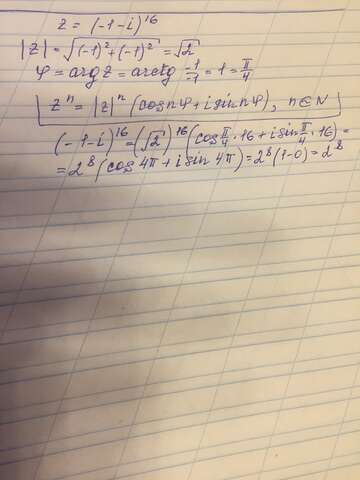 z = (-1-i)^16
|z| = √((-1)²+(-1)²) = √2
φ = arg z = arctg -1/-1 = 1 = π/4
z^n = |z|^n (cos nφ + i sin nφ), n∈N
(-1-i)^16 = (√2)^16 (cos π/4 · 16 + i sin π/4 · 16) =
= 2^8 (cos 4π + i sin 4π) = 2^8 (1-0) = 2^8